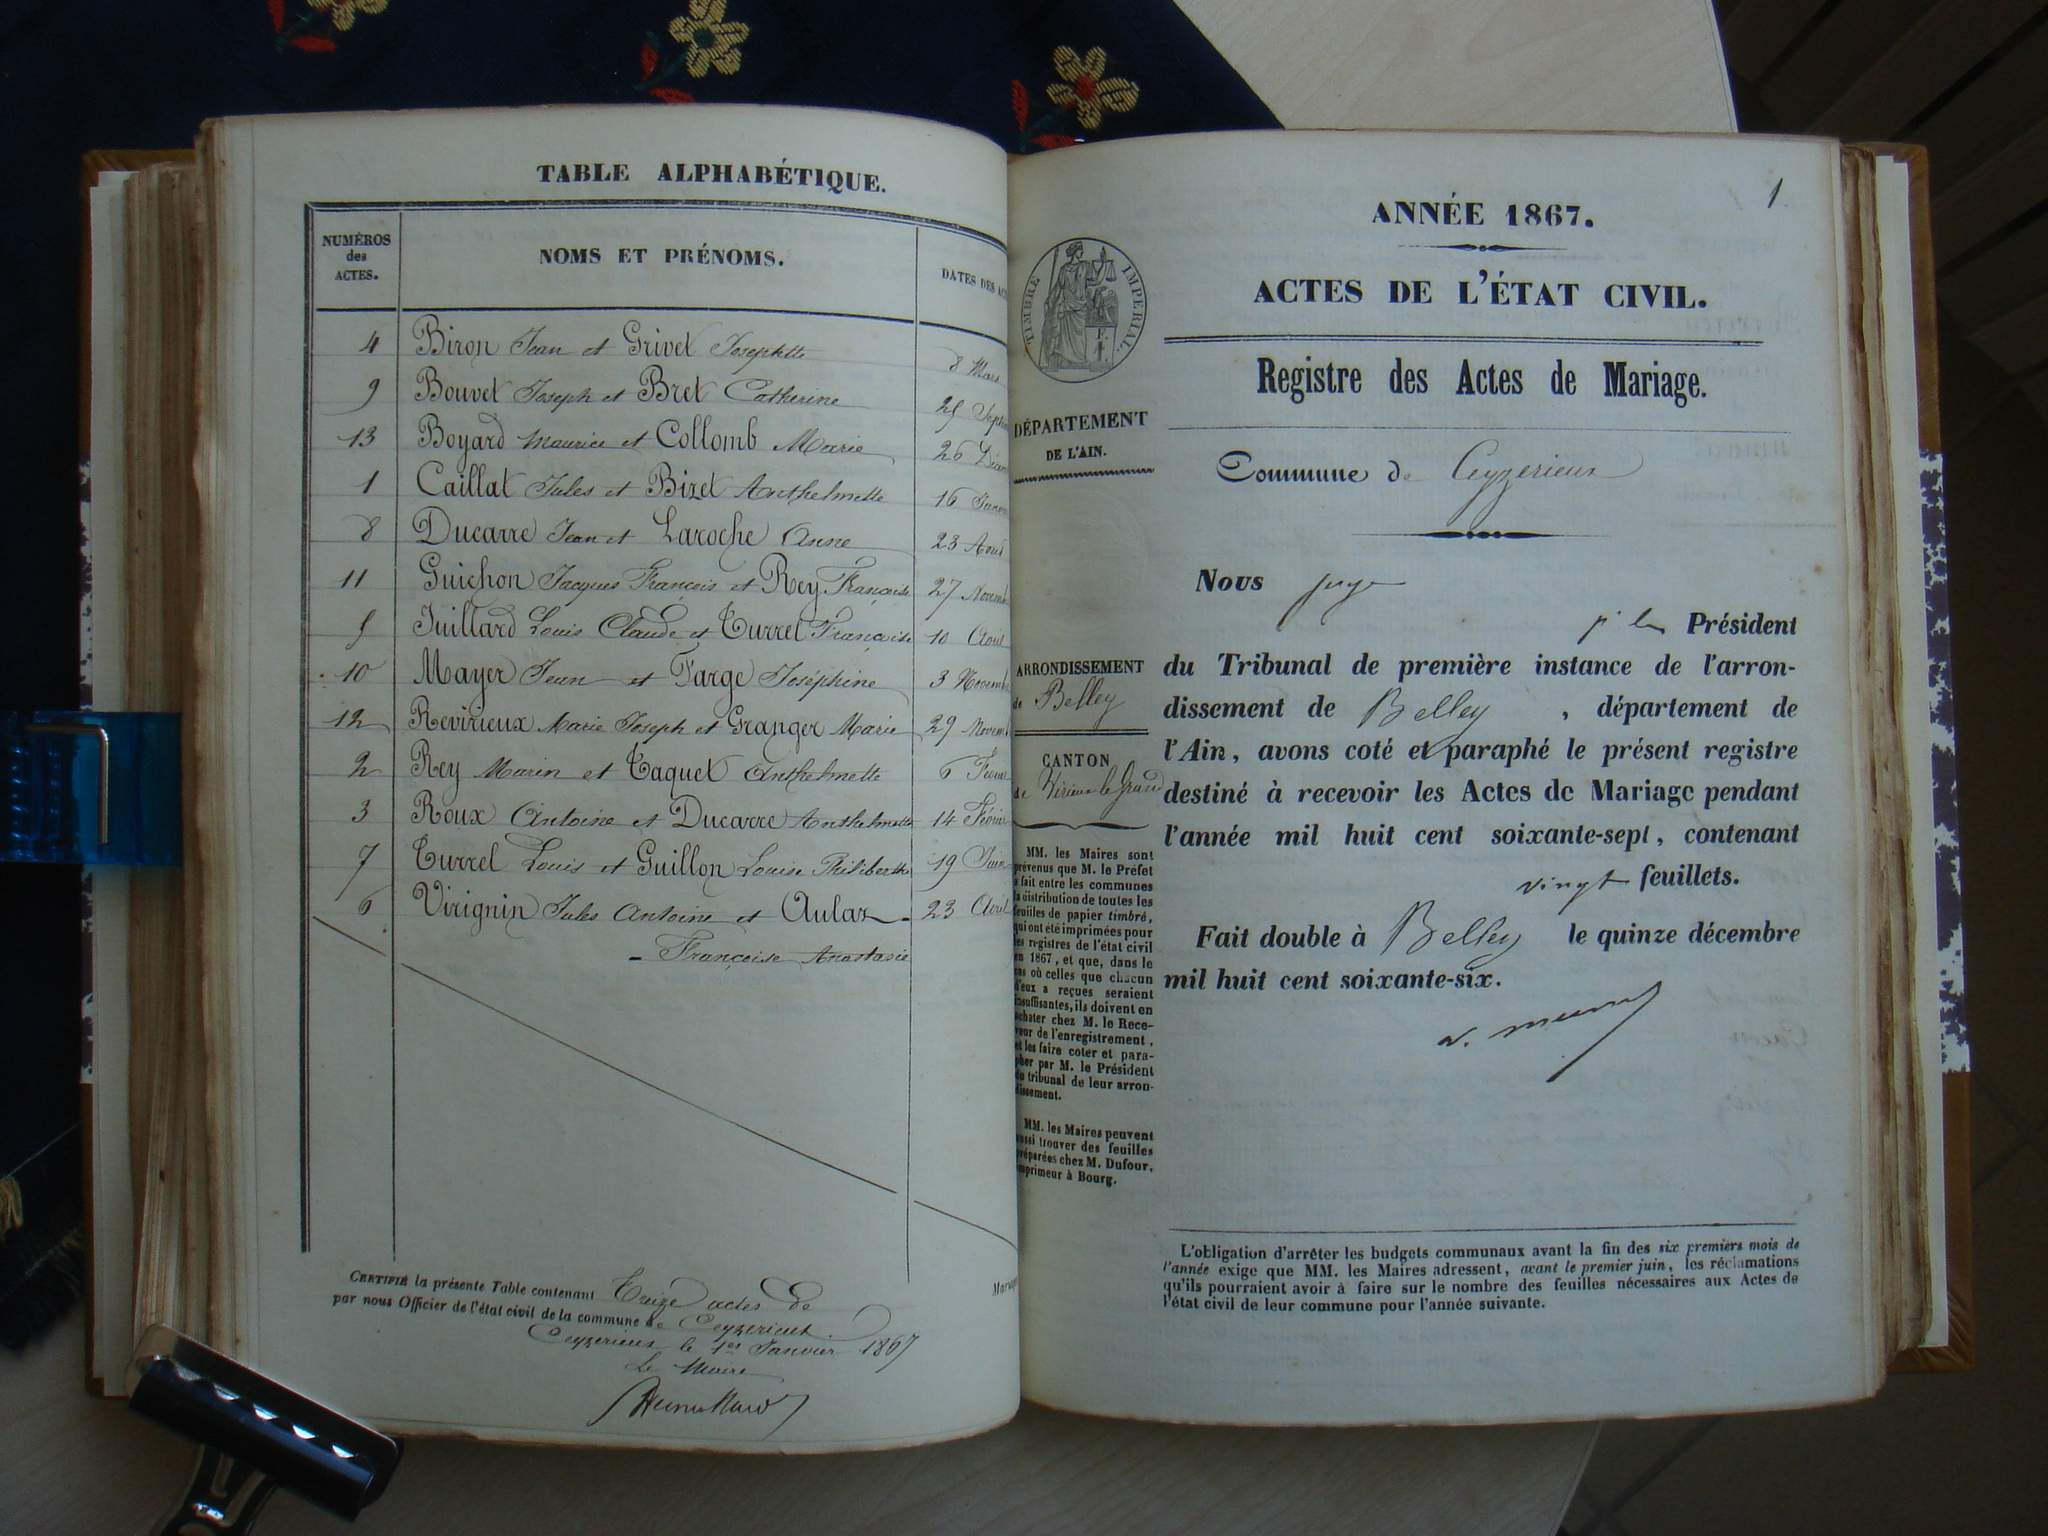 TABLE ALPHABÉTIQUE.
NUMÉROS
des
ACTES.
NOMS ET PRÉNOMS.
DATES DES
4 Biron Jean et Grivel Josephte 8 Mars
9 Bouvet Joseph et Bret Catherine 25
13 Boyard Maurice et Collomb Marie 26
1 Caillat Jules et Bizet Anthelmette 16
8 Ducarre Jean et Laroche Anne 23 Aout
11 Guichon Jacques François et Rey Françoise 27
5 Juillard Louis Claude et Turrel Françoise 10 Avril
10 Mayer Jean et Farge Joséphine 3
12 Revirieux Marie Joseph et Granger Marie 29
2 Rey Marin et Taquet Anthelmette 6
3 Roux Antoine et Ducarre Anthelmette 14
7 Turrel Louis et Guillon Louise Philiberthe 19 Juin
6 Virignin Jules Antoine et Aulaz 23 Avril
Françoise Anastasie
CERTIFIÉ la présente Table contenant Treize actes de
par nous Officier de l'état civil de la commune de Ceyzerieux.
Ceyzerieux le 1er Janvier 1867
Le Maire
1
ANNÉE 1867.
ACTES DE L'ÉTAT CIVIL.
TIMBRE IMPERIAL.
Registre des Actes de Mariage.
DÉPARTEMENT
DE L'AIN.
Commune de Ceyzerieux
Nous juge
Président
du Tribunal de première instance de l'arron-
dissement de Belley, département de
l'Ain, avons coté et paraphé le présent registre
destiné à recevoir les Actes de Mariage pendant
l'année mil huit cent soixante-sept, contenant
vingt feuillets.
Fait double à Belley le quinze décembre
mil huit cent soixante-six.
ARRONDISSEMENT
de Belley
CANTON
de Virieu le Grand
MM. les Maires sont
prévenus que M. le Préfet
a fait entre les communes
la distribution de toutes les
feuilles de papier timbré,
qui ont été imprimées pour
les registres de l'état civil
en 1867, et que, dans le
cas où celles que chacun
d'eux a reçues seraient
insuffisantes, ils doivent en
acheter chez M. le Rece-
veur de l'enregistrement,
et les faire coter et para-
pher par M. le Président
du tribunal de leur arron-
dissement.
MM. les Maires peuvent
aussi trouver des feuilles
préparées chez M. Dufour,
imprimeur à Bourg.
L'obligation d'arrêter les budgets communaux avant la fin des six premiers mois de
l'année exige que MM. les Maires adressent, avant le premier juin, les réclamations
qu'ils pourraient avoir à faire sur le nombre des feuilles nécessaires aux Actes de
l'état civil de leur commune pour l'année suivante.